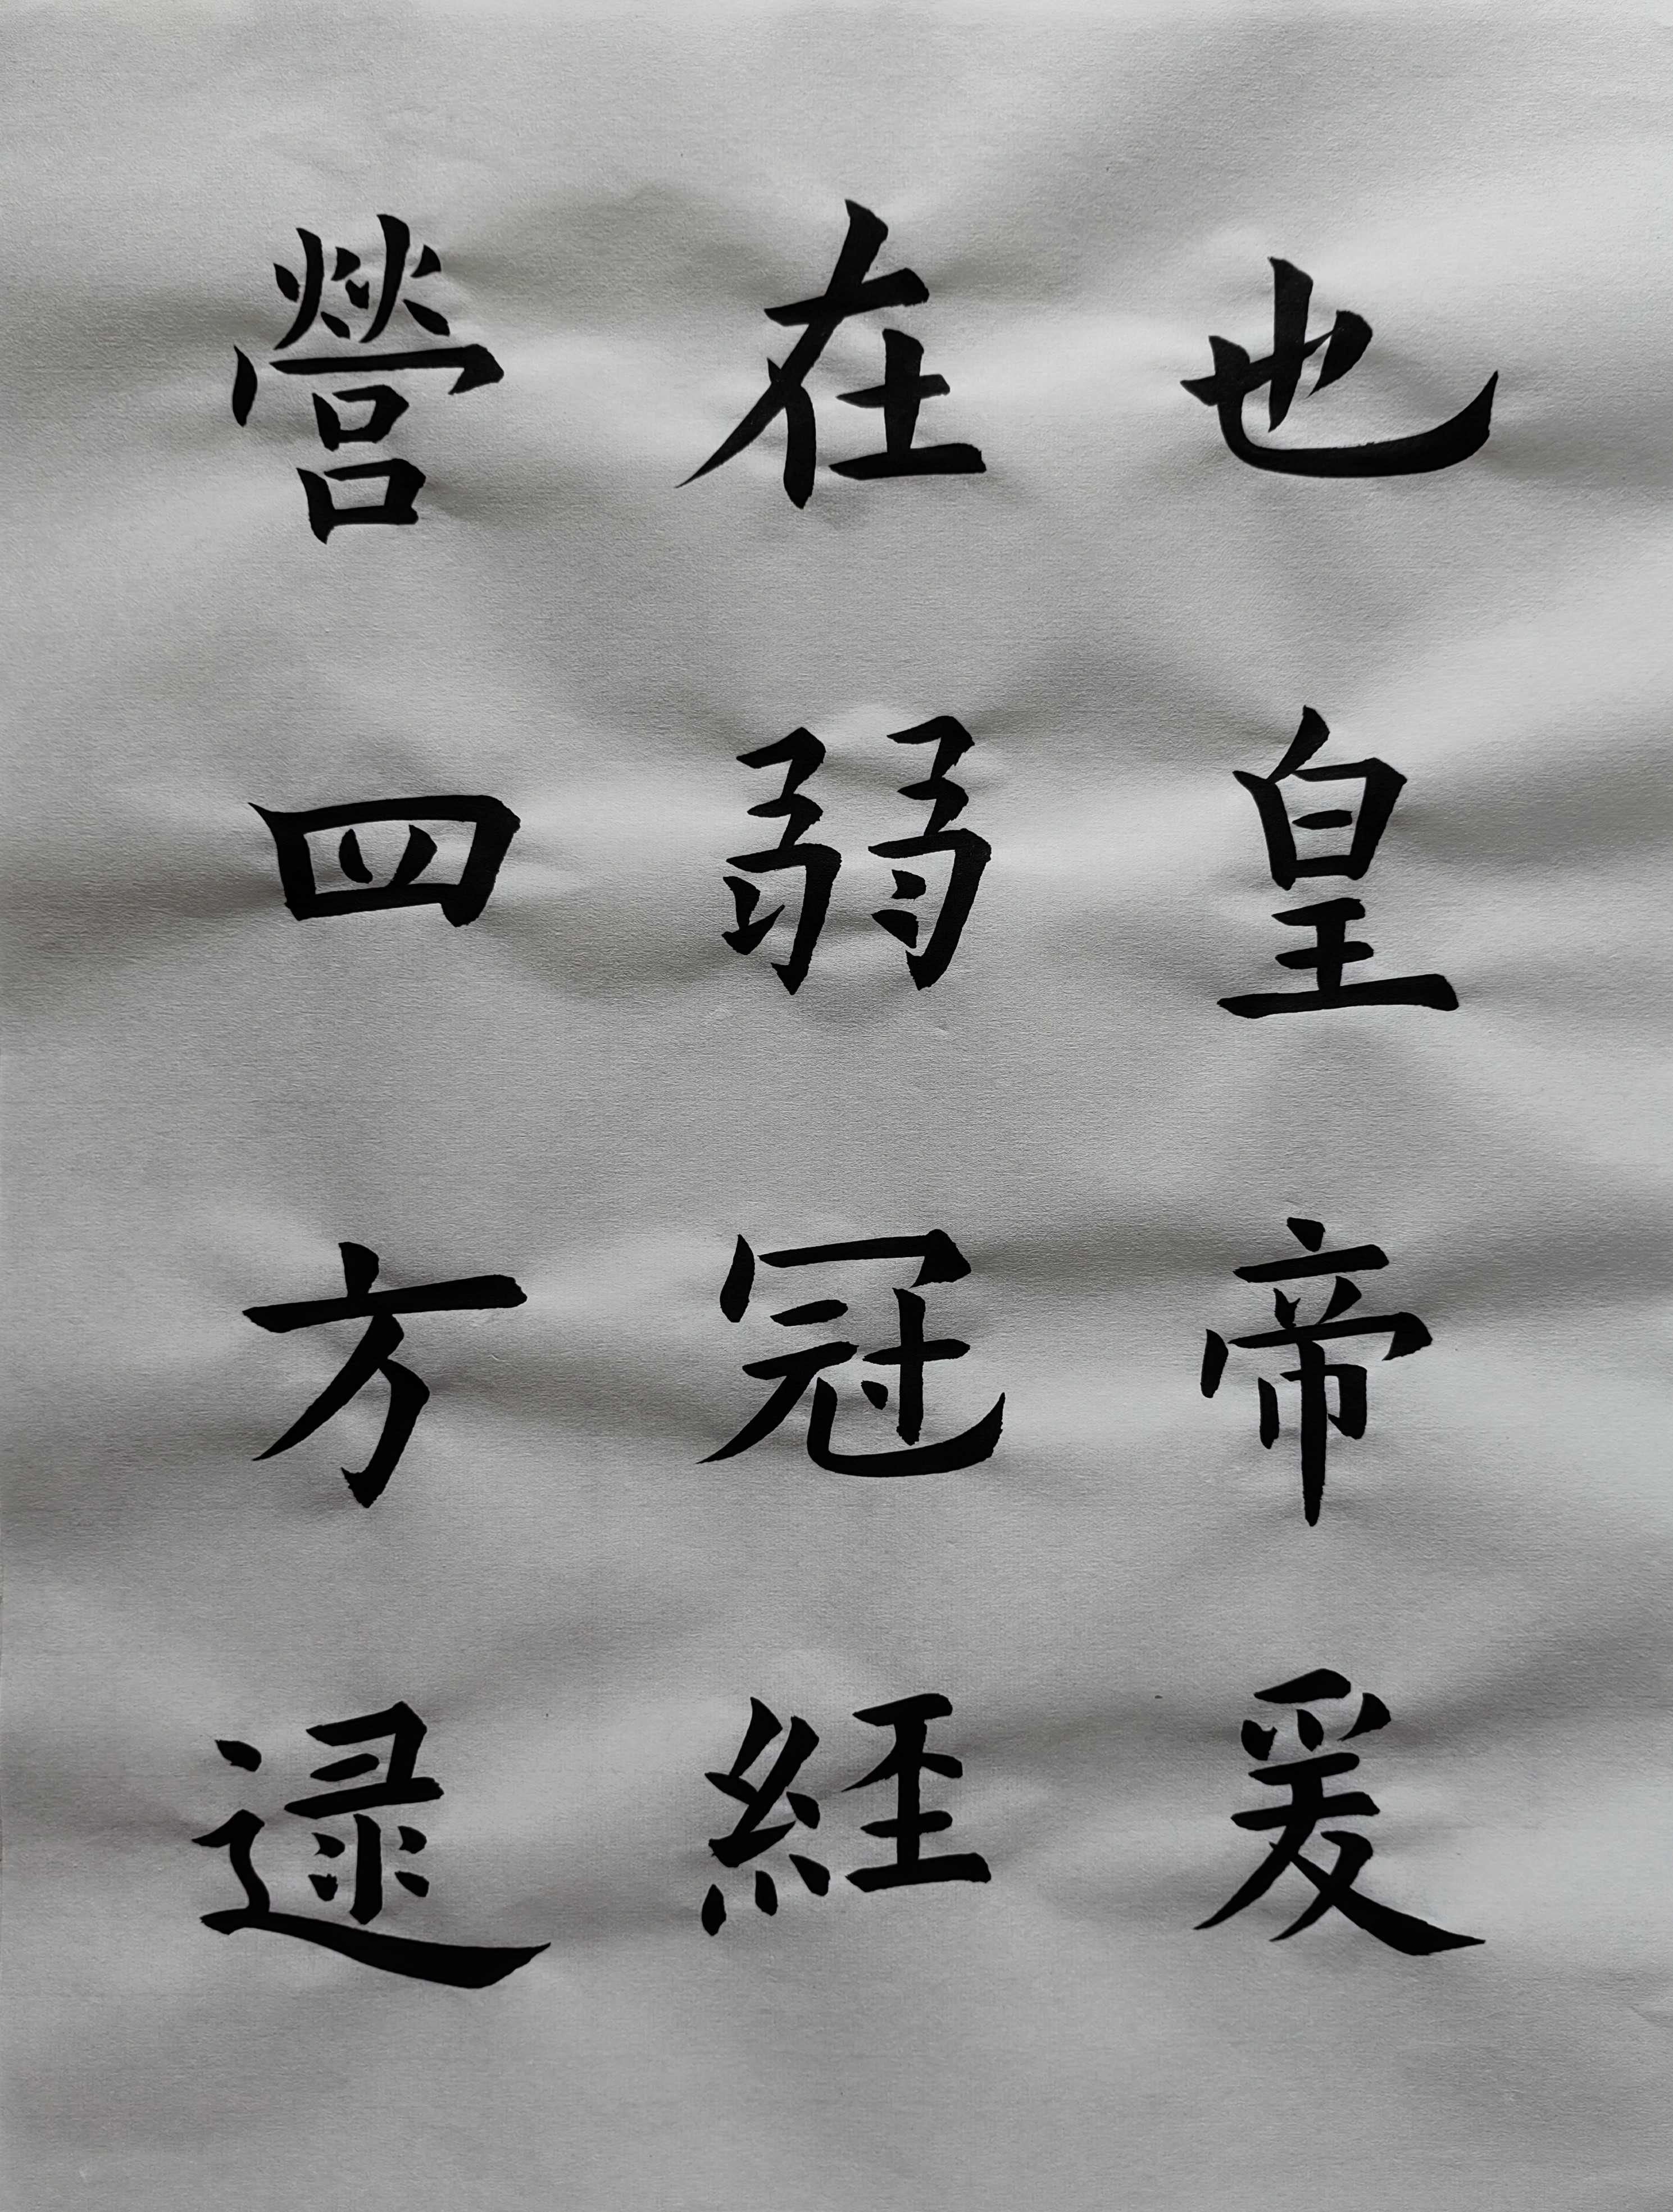 也皇帝爰
在弱冠経
營四方逯